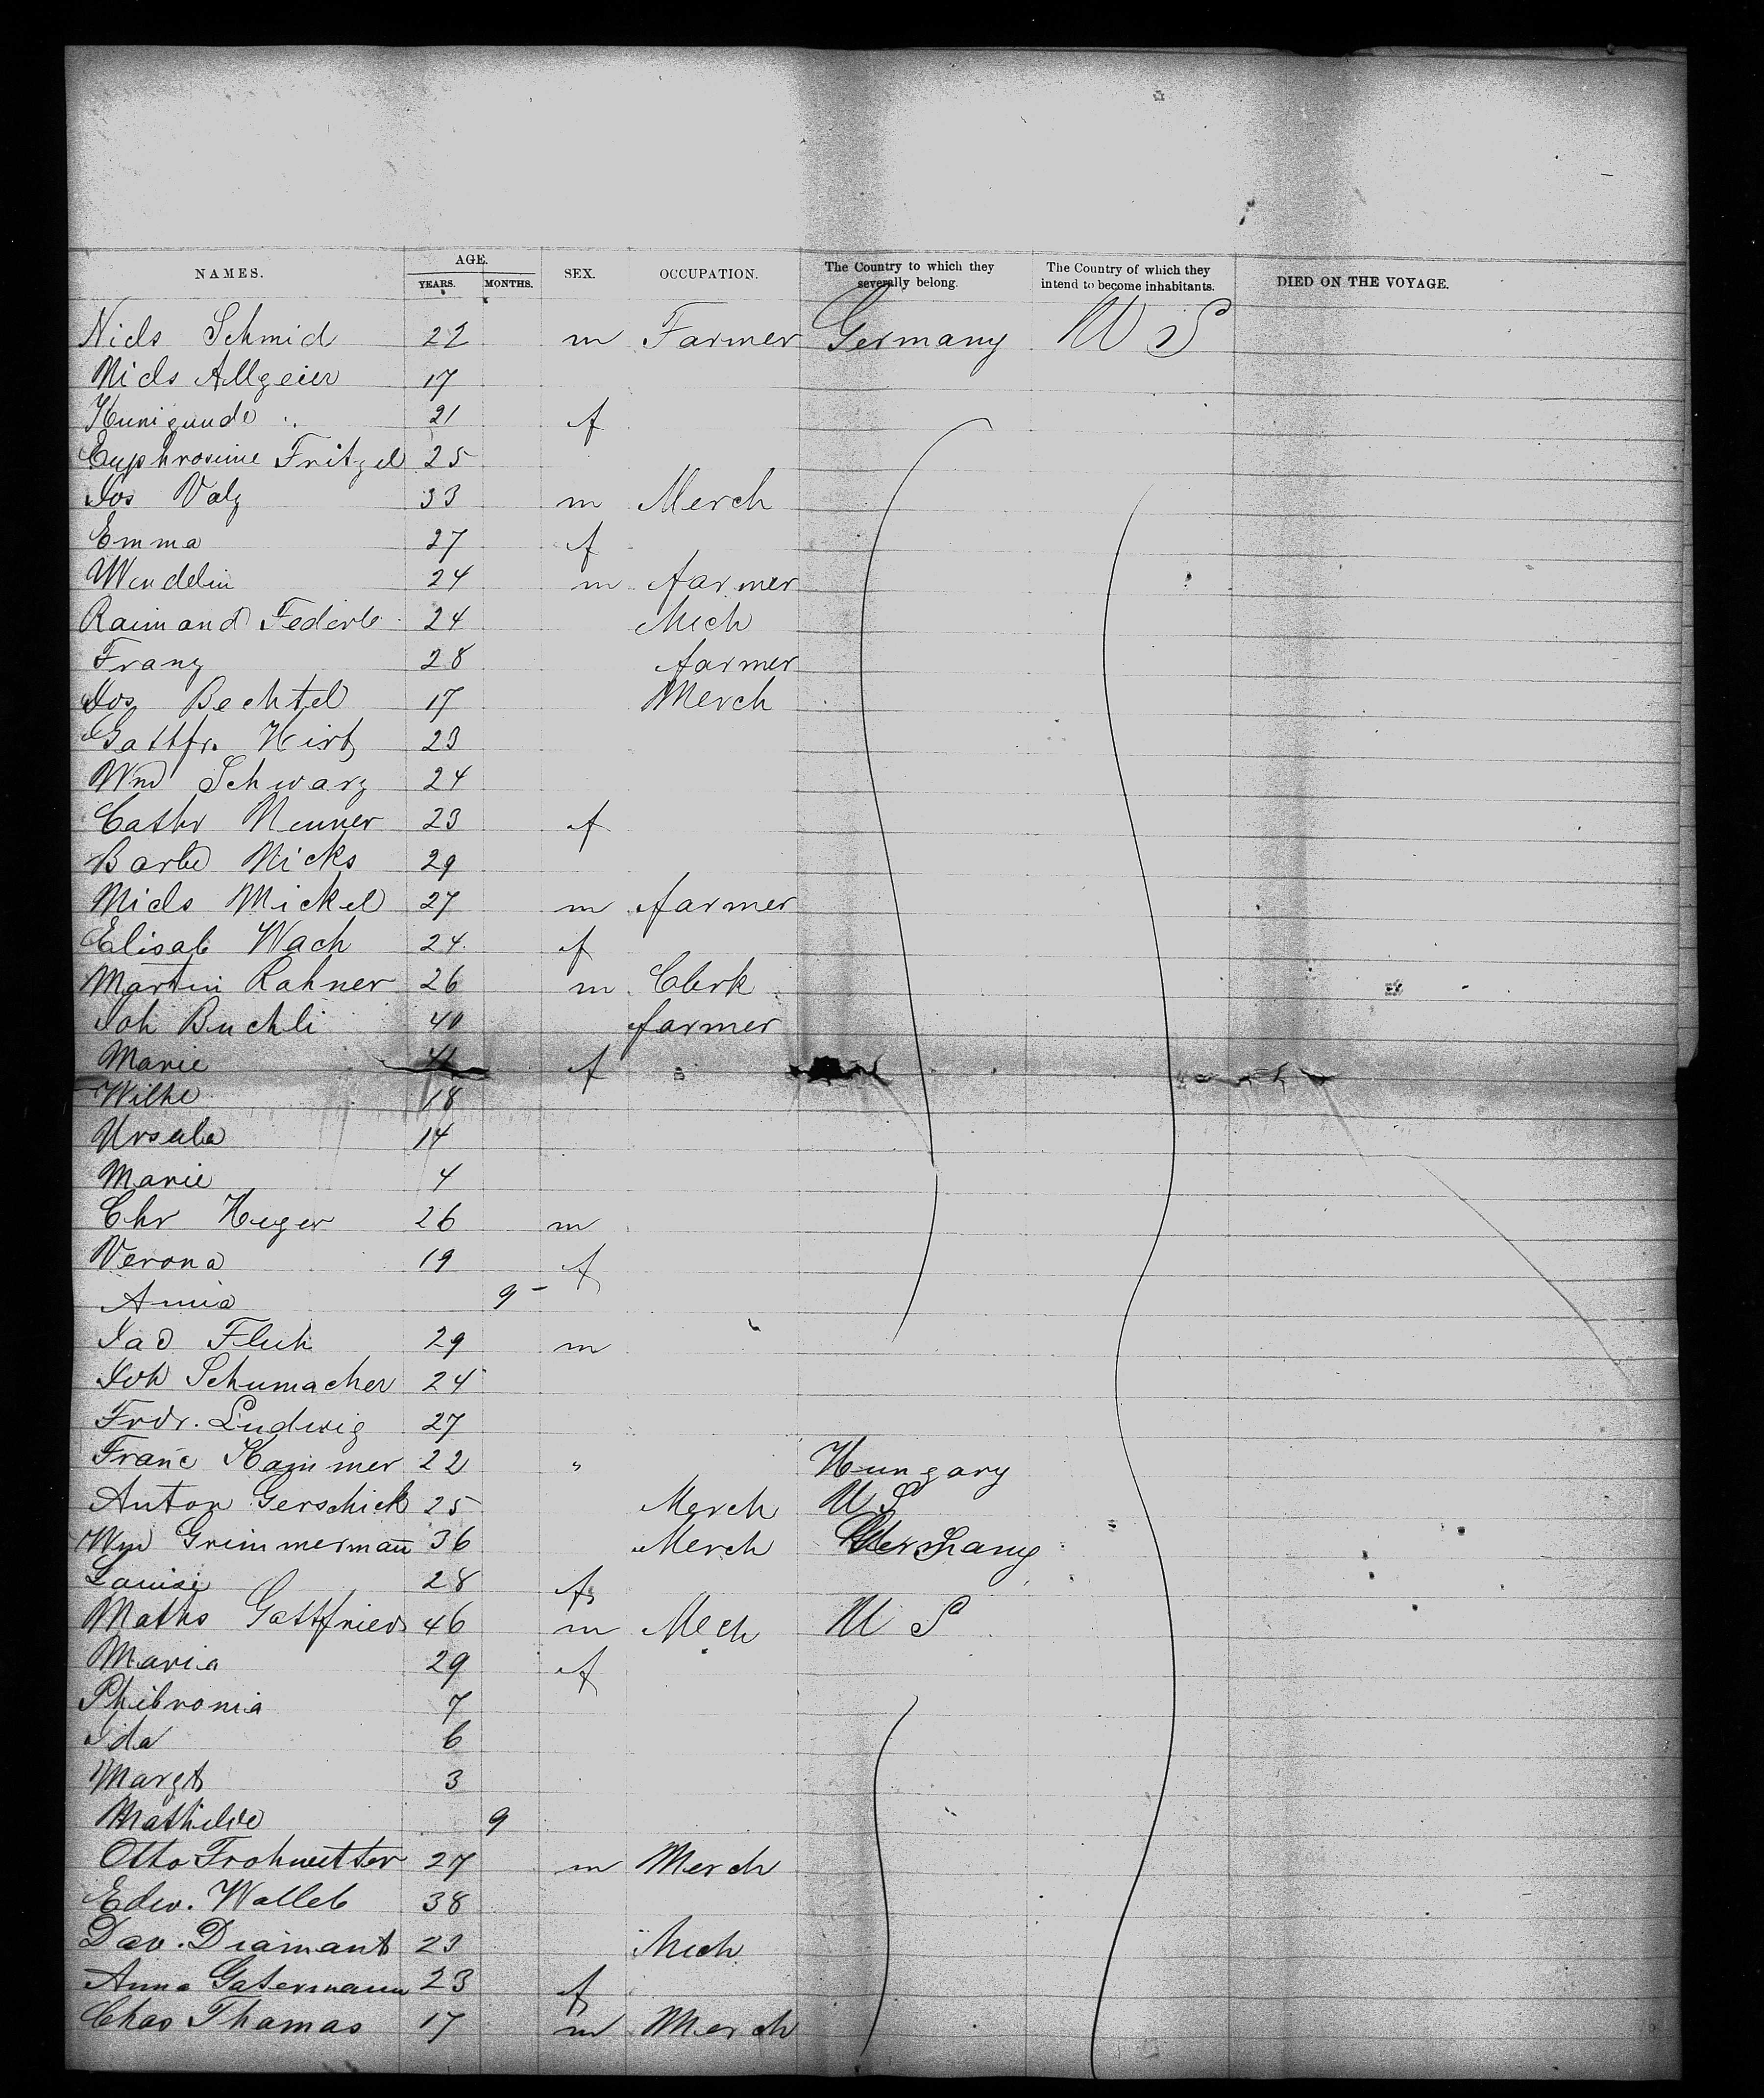 NAMES. AGE. YEARS. MONTHS. SEX. OCCUPATION. The Country to which they severally belong. The Country of which they intend to become inhabitants. DIED ON THE VOYAGE.
Niels Schmid 22 m Farmer Germany U S
Niels Allgeier 17
Kunigunde " 21 f
Euphrosine Fritzel 25
Jos Valz 33 m Merch
Emma 27 f
Wendelin 24 m farmer
Raimand Federle 24 Mech
Franz 28 farmer
Jos Bechtel 17 Merch
Gottfr. Hirt 23
Wm Schwarz 24
Cathr Nenner 23 f
Barbe Nicks 29
Niels Mickel 27 m farmer
Elisab Wach 24 f
Martin Rahner 26 m Clerk
Joh Buchli 40 farmer
Marie f
Wilhe 18
Ursula 14
Marie 4
Chr Heger 26 m
Verona 19 f
Anna 9
Jac Fluh 29 m
Joh Schumacher 24
Frdr. Ludwig 27
Franc Kammer 22 " Hungary
Anton Gerschick 25 Merch U S
Wm Grimmermann 36 Merch Germany
Louise 28 f
Maths Gottfried 46 m Mech U S
Maria 29 f
Phibronia 7
Ida 6
Margt 3
Mathilde 9
Otto Frohwitter 27 m Merch
Edw. Walleb 38
Dav. Diamant 23 Mech
Anna Gatermann 23 f
Chas Thamas 17 m Merch